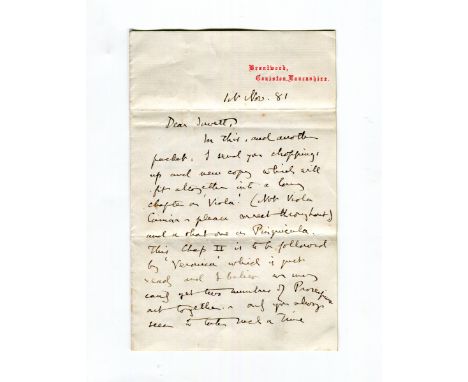 Brantwood,
Coniston, Lancashire.
1st Nov. 81
Dear Jowett,
In this, and another
packet, I send you choppings
up and new copy which will
fit altogether into a long
chapter on Viola! (Not Viola
please correct throughout)
and a short one on Pinguicula.
This Chap II is to be followed
by 'Veronica' which is just
ready and I believe we may
easily get two numbers of Proserpina
out together - only you always
seem to take such a time